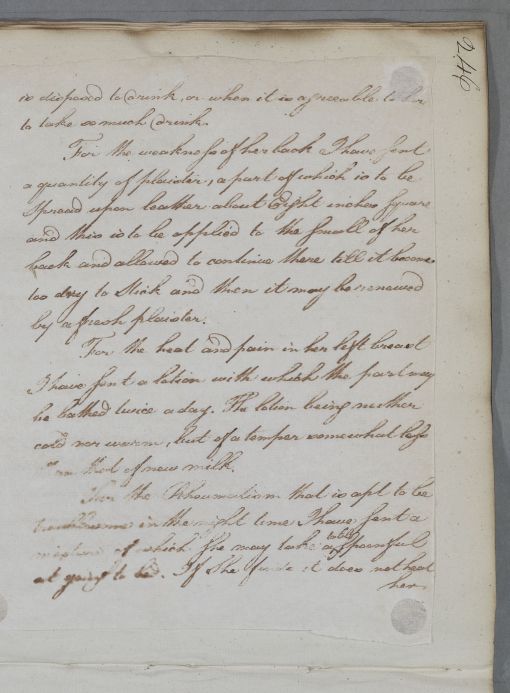 246
is disposed to drink, or when it is agreeable to her
to take so much drink.
For the weakness of her back I have sent
a quantity of plaister, a part of which is to be
Spread upon leather about Eight inches Square
and this is to be applied to the Small of her
back and allowed to continue there till it become
too dry to Stick and then it may be renewed
by a fresh plaister.
For the heat and pain in her left breast
I have sent a lotion with which the part may
be bathed twice a day. The lotion being neither
cold nor warm, but of a temper somewhat less
than that of new milk.
For the Rheumatism that is apt to be
troublesome in the night time I have sent a
mixture of which She may take a table Spoonful
at going to bed. If She finds it does not heat
her